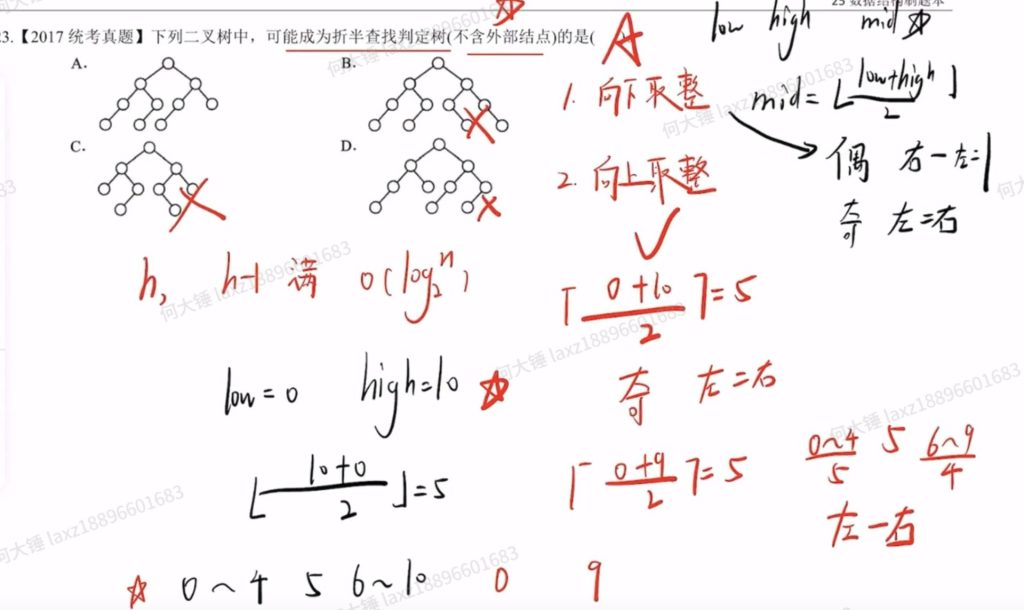 25 数据结构刷题本
23.【2017 统考真题】下列二叉树中，可能成为折半查找判定树(不含外部结点)的是( A
A.
B.
C.
D.
low high mid
1. 向下取整
mid = ⌊(low+high)/2⌋
偶 右-左=1
奇 左=右
2. 向上取整
h, h-1 满 O(log₂ⁿ)
⌈(0+10)/2⌉=5
奇 左=右
low=0 high=10
⌊(10+0)/2⌋=5
⌈(0+9)/2⌉=5
0~4 5 6~9
5 4
左-右
0~4 5 6~10
0 9
何大锤 laxz18896601683